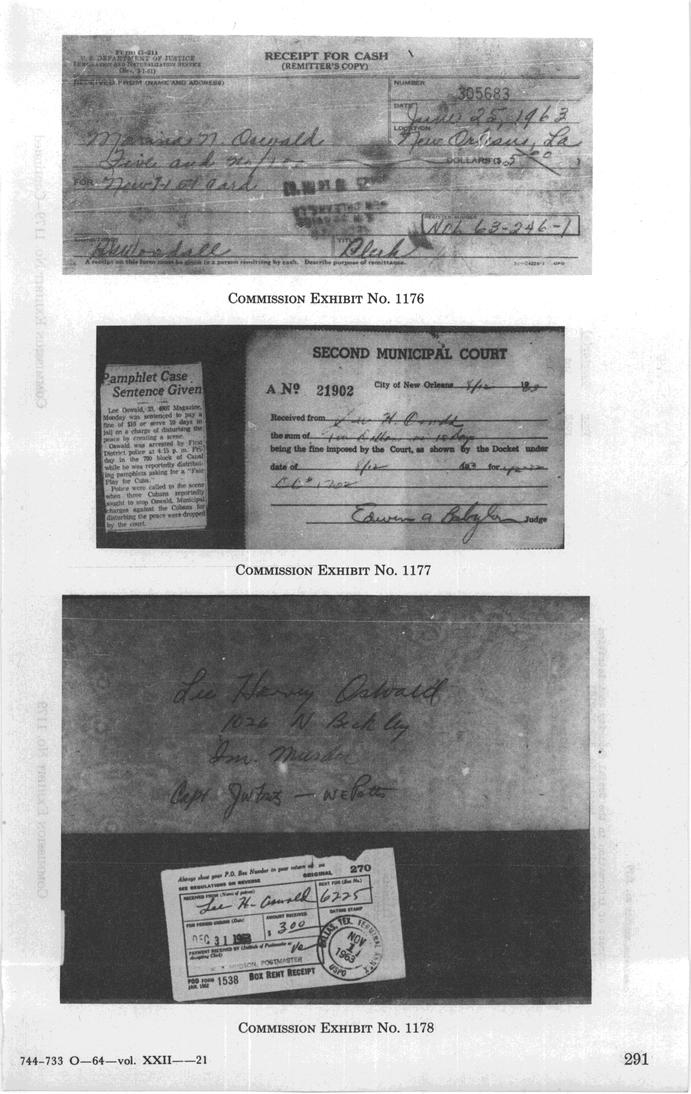 U. S. DEPARTMENT OF JUSTICE
IMMIGRATION AND NATURALIZATION SERVICE
RECEIPT FOR CASH
(REMITTER'S COPY)
RECEIVED FROM (NAME AND ADDRESS)
NUMBER
305683
DATE
June 25, 1963
LOCATION
New Orleans, La
Marina N. Oswald
Five and no/100
DOLLARS ($ 5.00 )
FOR
New I-151 Card
REGISTER NUMBER
Nol 63-246-1
TITLE
Clerk
A receipt on this form must be given to a person remitting by cash. Describe purpose of remittance.
COMMISSION EXHIBIT NO. 1176
Pamphlet Case
Sentence Given
Lee Oswald, 23, 4907 Magazine,
Monday was sentenced to pay a
fine of $10 or serve 10 days in
jail on a charge of disturbing the
peace by creating a scene.
Oswald was arrested by First
District police at 4:15 p. m. Fri-
day in the 700 block of Canal
while he was reportedly distribut-
ing pamphlets asking for a "Fair
Play for Cuba."
Police were called to the scene
when three Cubans reportedly
sought to stop Oswald. Municipal
charges against the Cubans for
disturbing the peace were dropped
by the court.
SECOND MUNICIPAL COURT
A No 21902
City of New Orleans 8/12 1963
Received from Lee H. Oswald
the sum of Ten Dollars or 10 days
being the fine imposed by the Court, as shown by the Docket under
date of 8/12 for
Edwin A Babylon Judge
COMMISSION EXHIBIT NO. 1177
Lee Harvey Oswald
1026 N Beckley
Inv. Murder
Capt JW Fritz — WE Potts
Always show your P.O. Box Number in your return
270
SEE REGULATIONS ON REVERSE
ORIGINAL
RECEIVED FROM (Name of patron)
RENT FOR (Box No.)
Lee H. Oswald
6225
FOR PERIOD ENDING (Date)
AMOUNT RECEIVED
DATING STAMP
DEC 31 1963
$ 3 00
PAYMENT RECEIVED BY (Initials of Postmaster or
accepting Clerk)
POSTMASTER
DALLAS, TEX.
NOV
1
1963
USPO
POD FORM 1538 BOX RENT RECEIPT
JAN. 1962
COMMISSION EXHIBIT NO. 1178
744-733 O—64—vol. XXII——21
291